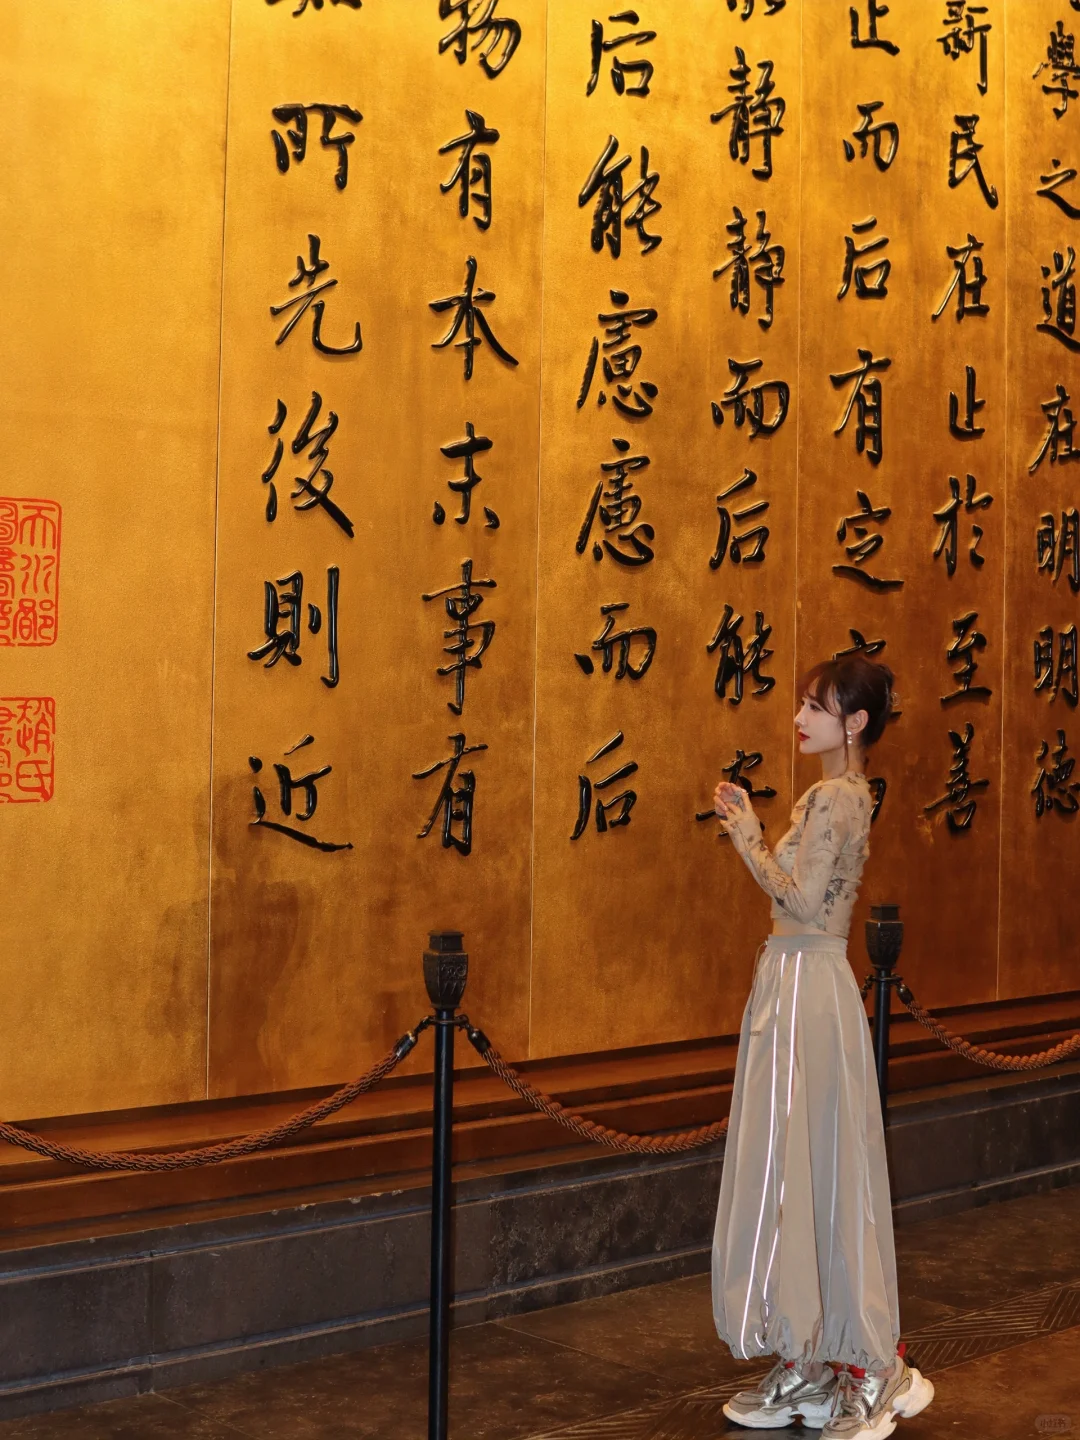 學之道在明明德
新民在止於至善
止而后有定定
能靜靜而后能安
后能慮慮而后
物有本末事有
所先後則近
天水郡
趙氏